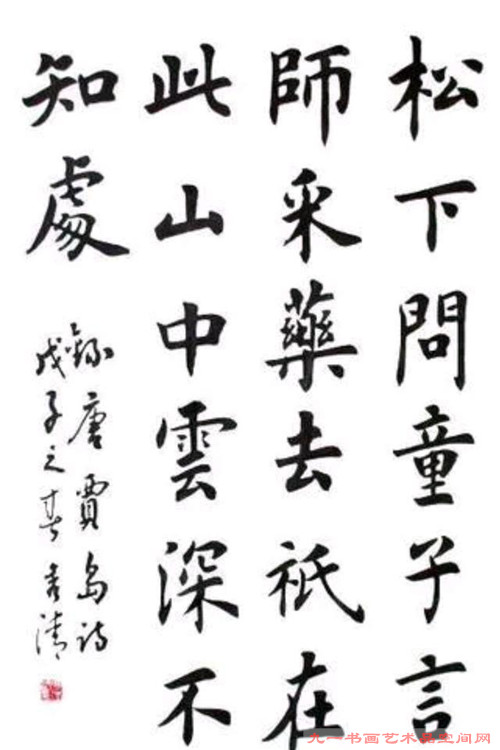 松下問童子言
師采藥去祇在
此山中雲深不
知處
錄唐賈島詩
戊子之春秀清
九一书画艺术品空间网